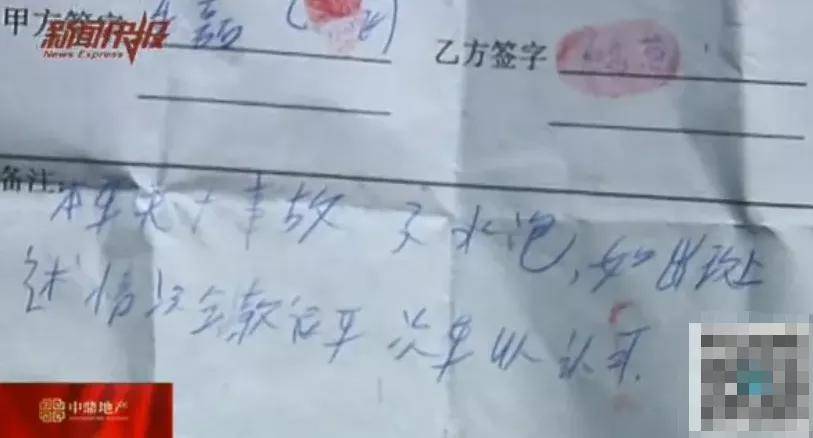 甲方签字
新闻快报
News Express
乙方签字
备注:
本车无大事故 水泡,如出现上
述情况全款退车 次车以认可.
中鼎地产